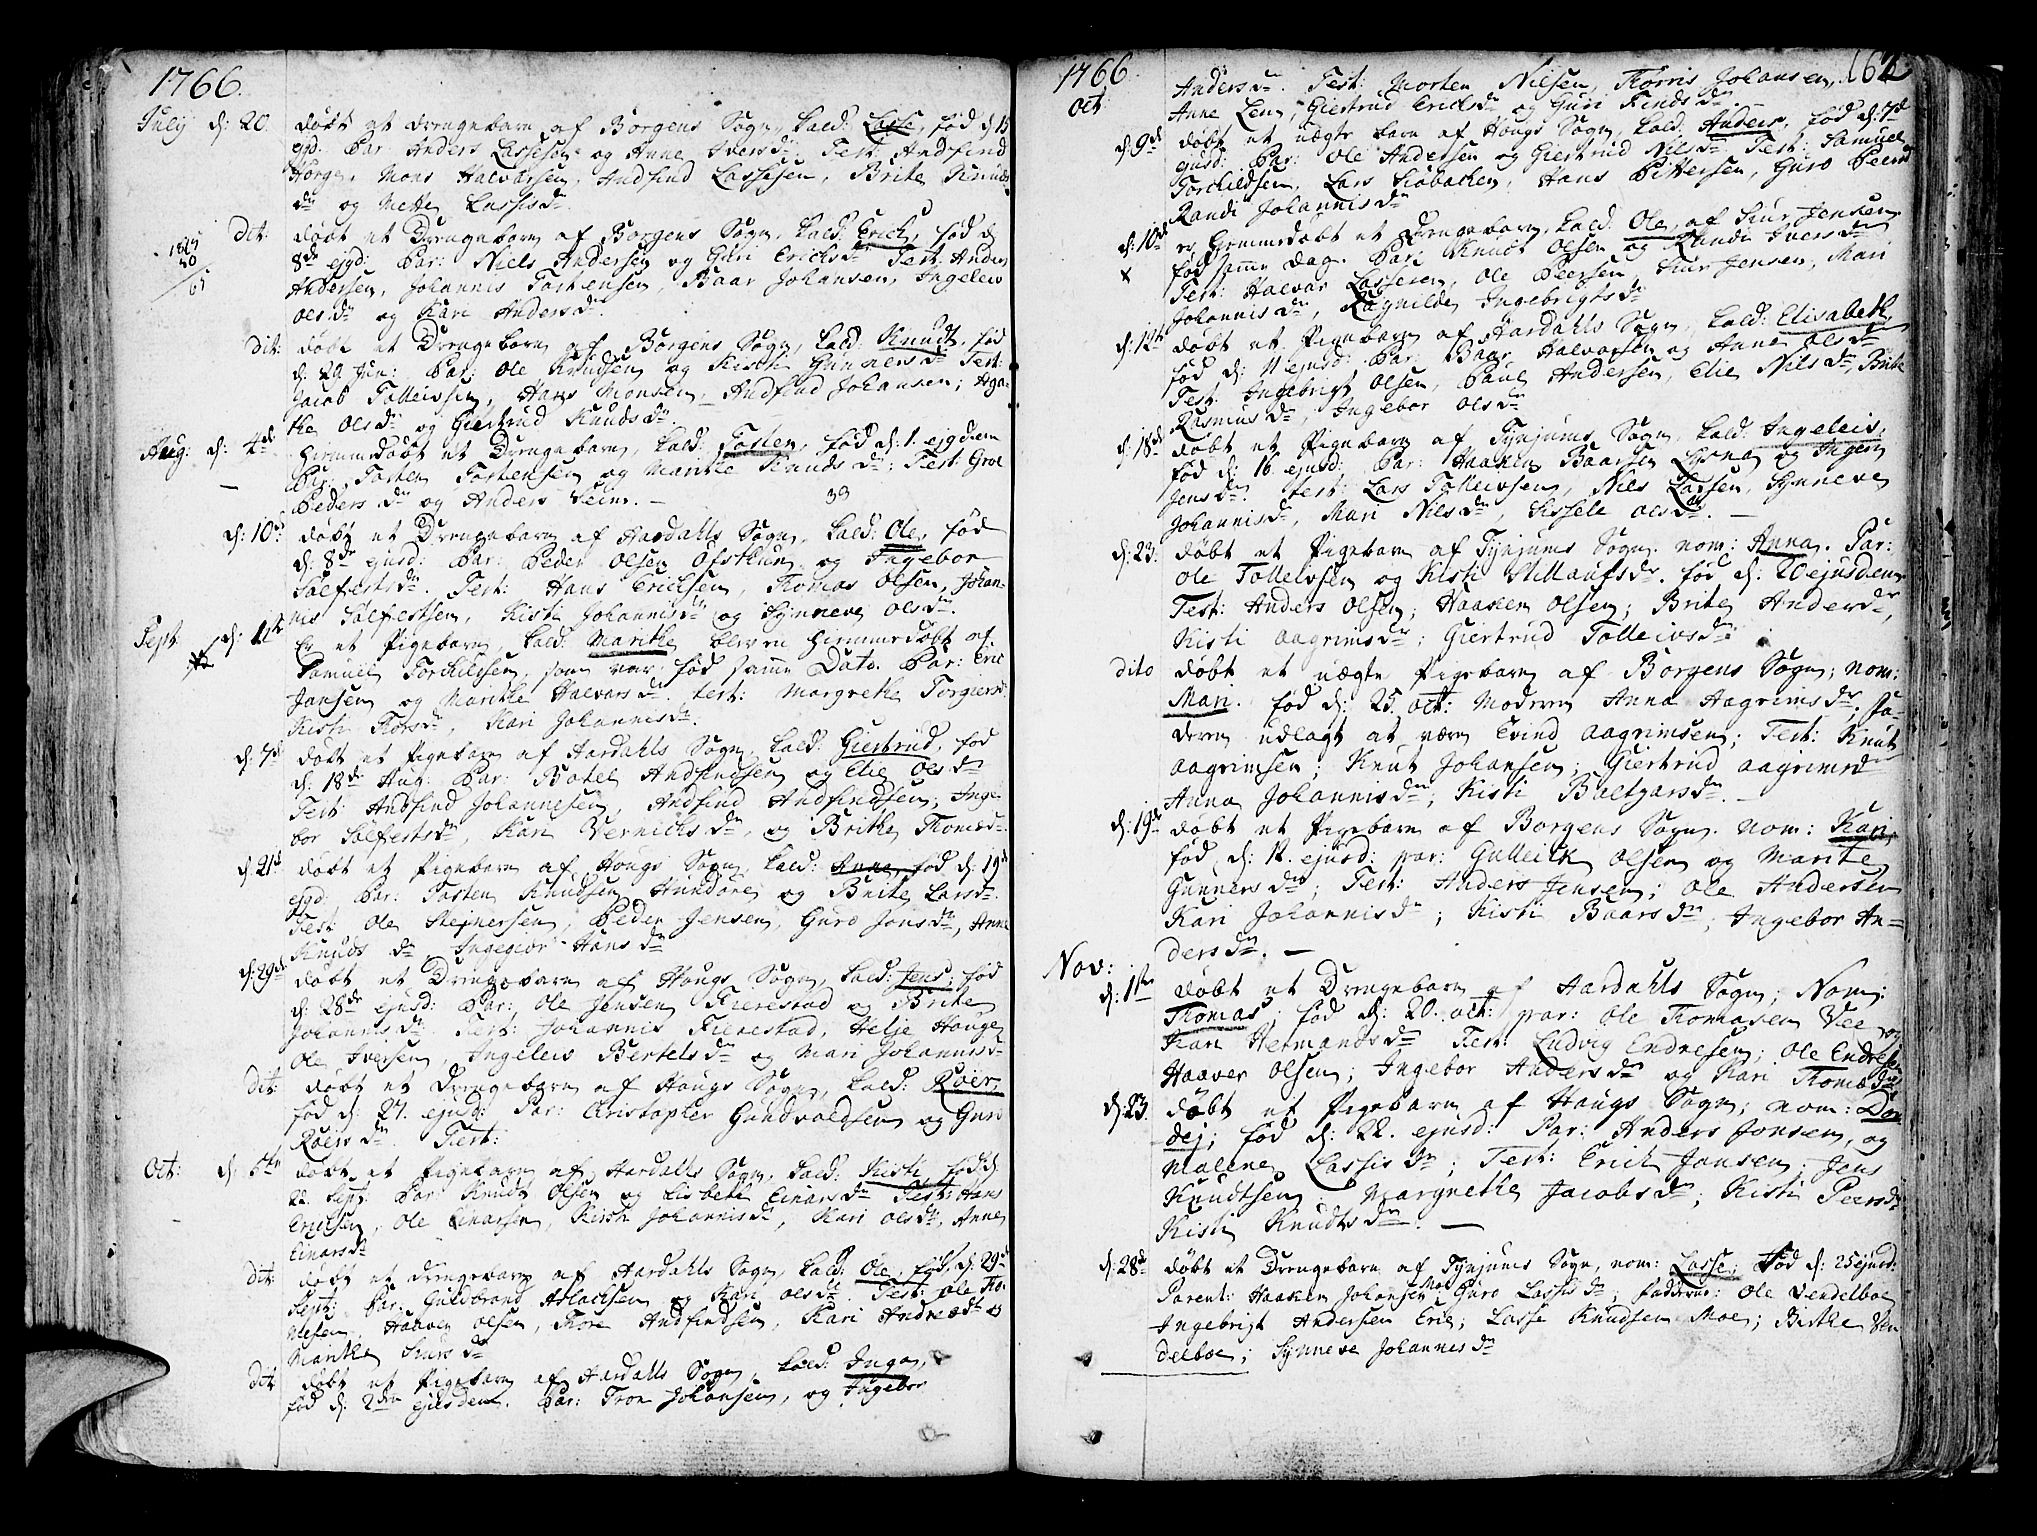 1766.
July d: 20. døbt et drengebarn af Borgens Sogn, kald: Lasse, fød d: 15
ejd: Par: Anders Lassesøn og Anne Iversdr. Test: Andfind
Horge, Mons Halvarsen, Andfind Lassesen, Brite Knuds
dr og Mette Lassisdr.
dit: døbt et Drengebarn af Borgens Sogn, kald: Erich, fød d
8de ejgd: Par: Niels Andersen og Guri Ericksdr Test: Anders
Andersen, Johannis Tostensen, Baar Johansen, Ingeleiv
Olsdr og Kari Andersdr.
dit: døbt et Drengebarn af Borgens Sogn, kald: Knudt, fød
d: 29 Jun: Par: Ole Knudsen og Kisti Gunnersdr Test:
Jacob Tolleivsen, Hans Monsen, Andfind Johansen; Aga-
the Olsdr og Giertrud Knudsdr
Aug: d: 4de hiemmedøbt et Drengebarn, kald: Tosten, fød d: 1. ejgdem
Par: Tosten Tostensen og Marithe Knudsdr; Test: Groe
Pedersdr og Anders Seim. —
d: 10de døbt et Drengebarn af Aardahls Sogn, kald: Ole, fød
d: 8de ejusd: Par: Peder Olsen Ofsthun og Ingebor
Sølfestsdr. Test: Hans Ericksen, Thomas Olsen, Johan-
nis Sølfestsen, Kisti Johannisdr og Synneve Olsdr.
Sept d: 1ste Er et Pigebarn, kald: Marithe bleven hiemmedøbt af
Samuel Torchildsen, som var fød samme Dato. Par: Eric
Jansen og Marithe Halvarsdr. test: Margrethe Torgiers:
Kisti Thorsdr, Kari Johannisdr.
d: 7de døbt et Pigebarn af Aardahls Sogn, kald: Giertrud, fød
d: 18de Aug: Par: Botel Andfindsen og Elie Olsdr
Test: Andfind Johannesen, Andfind Andfindsen, Inge
bor Sølfestsdr, Kari Vernichsdr, og Brithe Thomædr.
d: 21de døbt et Pigebarn af Hougs Sogn, kald: Anna, fød d: 19de
ejgd: Par: Tosten Knudsen Hundøre og Brite Larsdr.
Test Ole Steinersen, Peder Jensen, Guro Jonsdr, Anne
Knudsdr Ingegior Hansdr
d: 29de døbt et Drengebarn af Hougs Sogn, kald: Jens, fød
d: 28de ejusd: Par: Ole Jensen Fierestad og Brite
Johannisdr. Test: Johannis Fierestad, Helje Hauge
Ole Iversen, Ingeleiv Bertelsdr og Mari Johannisdr
dit: døbt et Drengebarn af Hougs Sogn, kald: Roer,
fød d: 27. ejusd: Par: Christopher Gundvaldsen og Guri
Roersdr. Test:
Oct: d: 5te døbt et Pigebarn af Aardalls Sogn, kald: Kisti, fød d
22. Sept: Par: Knudt Olsen og Lisbeth Einarsdr Test: Hans
Ericksen, Ole Einarsen, Kisti Johannisdr, Kari Olsdr, Anne
Einarsdr
dit: døbt et drengebarn af Aardahls Sogn, kald: Ole, fød d: 29de
Sept: Par: Guldbrand Aslachsen og Kari Olsdr. Test: Ole Tho-
mesen, Haaver Olsen, Thore Andfindsen, Kari Andreædr og
Marithe Siursdr
dit døbt et Pigebarn af Aardalls Sogn, kald: Inga,
fød d: 2den ejusdem. Par: Tron Johansen, og Ingebor
1766. 162
Oct: Andersdr. Test: Morten Nilsen, Thorris Johansen,
Anne Len, Giertrud Ericksdr og Guri Findsdr
d: 9de døbt et uægte barn af Hougs Sogn, kald. Anders, fød d: 7de
ejusd: Par: Ole Andersen og Giertrud Nilsdr Test: Samuel
Torchildsen, Lars Siøbachen, Hans Pittersen, Guro Peersdr
Randi Johannisdr
d: 10de er hjemmedøbt et Drengebarn, kald: Ole, af Siur Jensen
fød samme dag. Par: Knudt Olsen og Randi Iversdr
Test: Halvar Lassesen, Ole Peersen, Siur Jensen, Mari
Johannisdr, Ragnilde Ingebrigtsdr
d: 12te døbt et Pigebarn af Aardahls Sogn, kald: Elisabeth,
fød d: 11 ejusd: Par: Baar Halvarsen og Anne Olsdr
Test: Ingebrigt Olsen, Paul Andersen, Elie Nilsdr, Brite
Rasmusdr, Ingebor Olsdr
d: 18de døbt et Pigebarn af Tynjums Sogn, kald: Ingeleiv,
fød d: 16 ejusd: Par: Haaken Baarsen Lysna og Ingeri
Jensdr. Test: Lars Tolleivsen, Nils Larsen, Synneve
Johannisdr, Mari Nilsdr, Sissele Olsdr. —
d: 23. døbt et Pigebarn af Tynjums Sogn. nom: Anna. Par:
Ole Tolleivsen og Kisti Stillaufsdr. fød d: 20 ejusdem
Test: Anders Olsen; Haaken Olsen; Brite Andersdr,
Kisti Aagrimsdr; Giertrud Tolleivsdr.
dito døbt et uægte Pigebarn af Borgens Sogn; nom:
Mari. fød d: 25. oct: Moderen Anna Aagrimsdr. Fa-
deren udlagt at være Evind Aagrimsen; Test: Knut
Aagrimsen; Knut Johansen; Giertrud Aagrimsdr
Anna Johannisdr; Kisti Baltzarsdr. —
d: 19de døbt et Pigebarn af Borgens Sogn. nom: Kari,
fød d: 12. ejusd: par: Gulleick Olsen og Marite
Gunnersdr; Test: Anders Jensen; Ole Andersen
Kari Johannisdr; Kisti Baarsdr; Ingebor An-
dersdr. —
Nov:
d: 1ste døbt et Drengebarn af Aardahls Sogn; Nom:
Thomas, fød d: 20. oct: par: Ole Thomasen Vee og
Kari Hermandsdr Test: Ludvig Endresen; Ole Endresen
Haaver Olsen; Ingebor Andersdr og Kari Thomædr
d: 23. døbt et Pigebarn af Hougs Sogn; nom: Dor
dej; fød d: 22. ejusd: Par: Anders Jonsen, og
Malene Lassisdr; Test: Erich Jansen; Jens
Knudtsen; Margrethe Jacobsdr; Kisti Peersdr
Kisti Knudtsdr. —
d: 28de døbt et Drengebarn af Tynjums Sogn, nom: Lasse; fød d: 25 ejusd:
Parent: Haaken Johansen Moe Guro Lassisdr; fadderne: Ole Vendelboe
Ingebrigt Andersen Eri; Lasse Knudsen Moe; Birthe Ven
delboe; Synneve Johannisdr